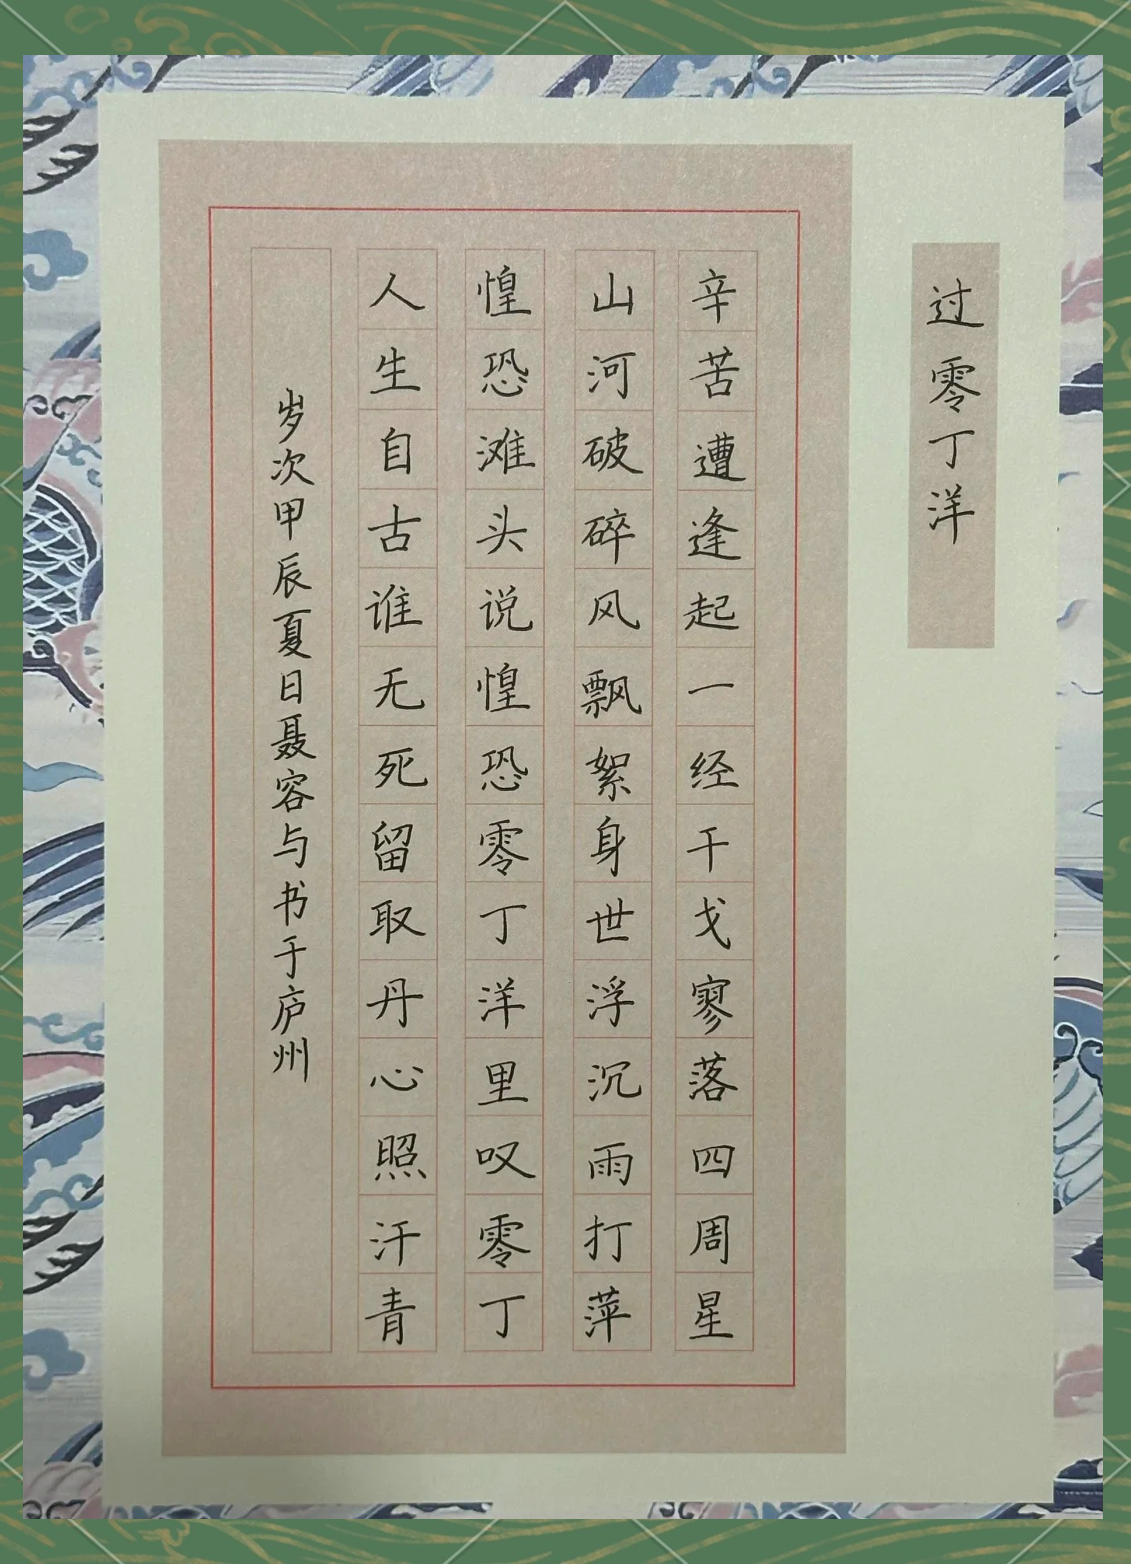 过零丁洋
辛苦遭逢起一经干戈寥落四周星
山河破碎风飘絮身世浮沉雨打萍
惶恐滩头说惶恐零丁洋里叹零丁
人生自古谁无死留取丹心照汗青
岁次甲辰夏日聂容与书于庐州